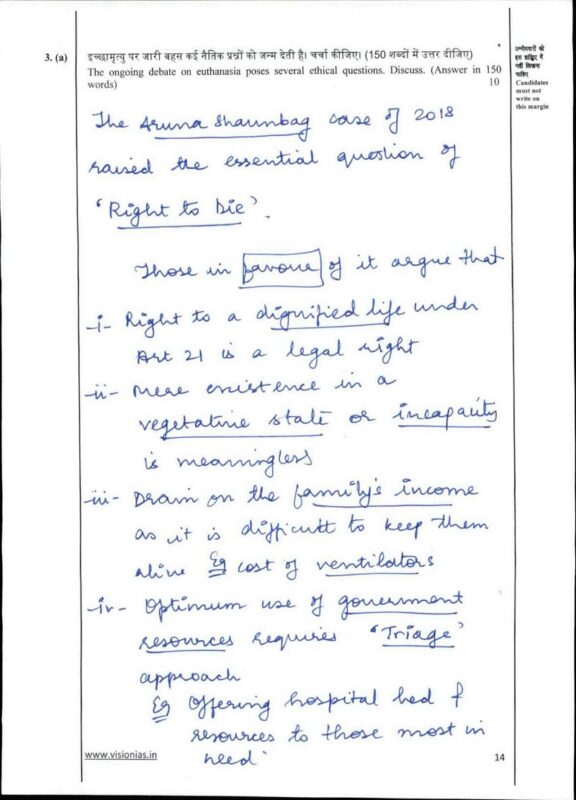 3. (a) इच्छामृत्यु पर जारी बहस कई नैतिक प्रश्नों को जन्म देती है। चर्चा कीजिए। (150 शब्दों में उत्तर दीजिए)
The ongoing debate on euthanasia poses several ethical questions. Discuss. (Answer in 150
words) 10
उम्मीदवारों को
इस हाशिए में
नहीं लिखना
चाहिए
Candidates
must not
write on
this margin
The Aruna Shaunbag case of 2018
raised the essential question of
'Right to Die'.
Those in favour of it argue that
-i- Right to a dignified life under
Art 21 is a legal right
-ii- Mere existence in a
vegetative state or incapacity
is meaningless
-iii- Drain on the family's income
as it is difficult to keep them
alive Eg cost of ventilators
-iv- Optimum use of government
resources requires 'Triage'
approach
Eg Offering hospital bed &
resources to those most in
need.
www.visionias.in
14